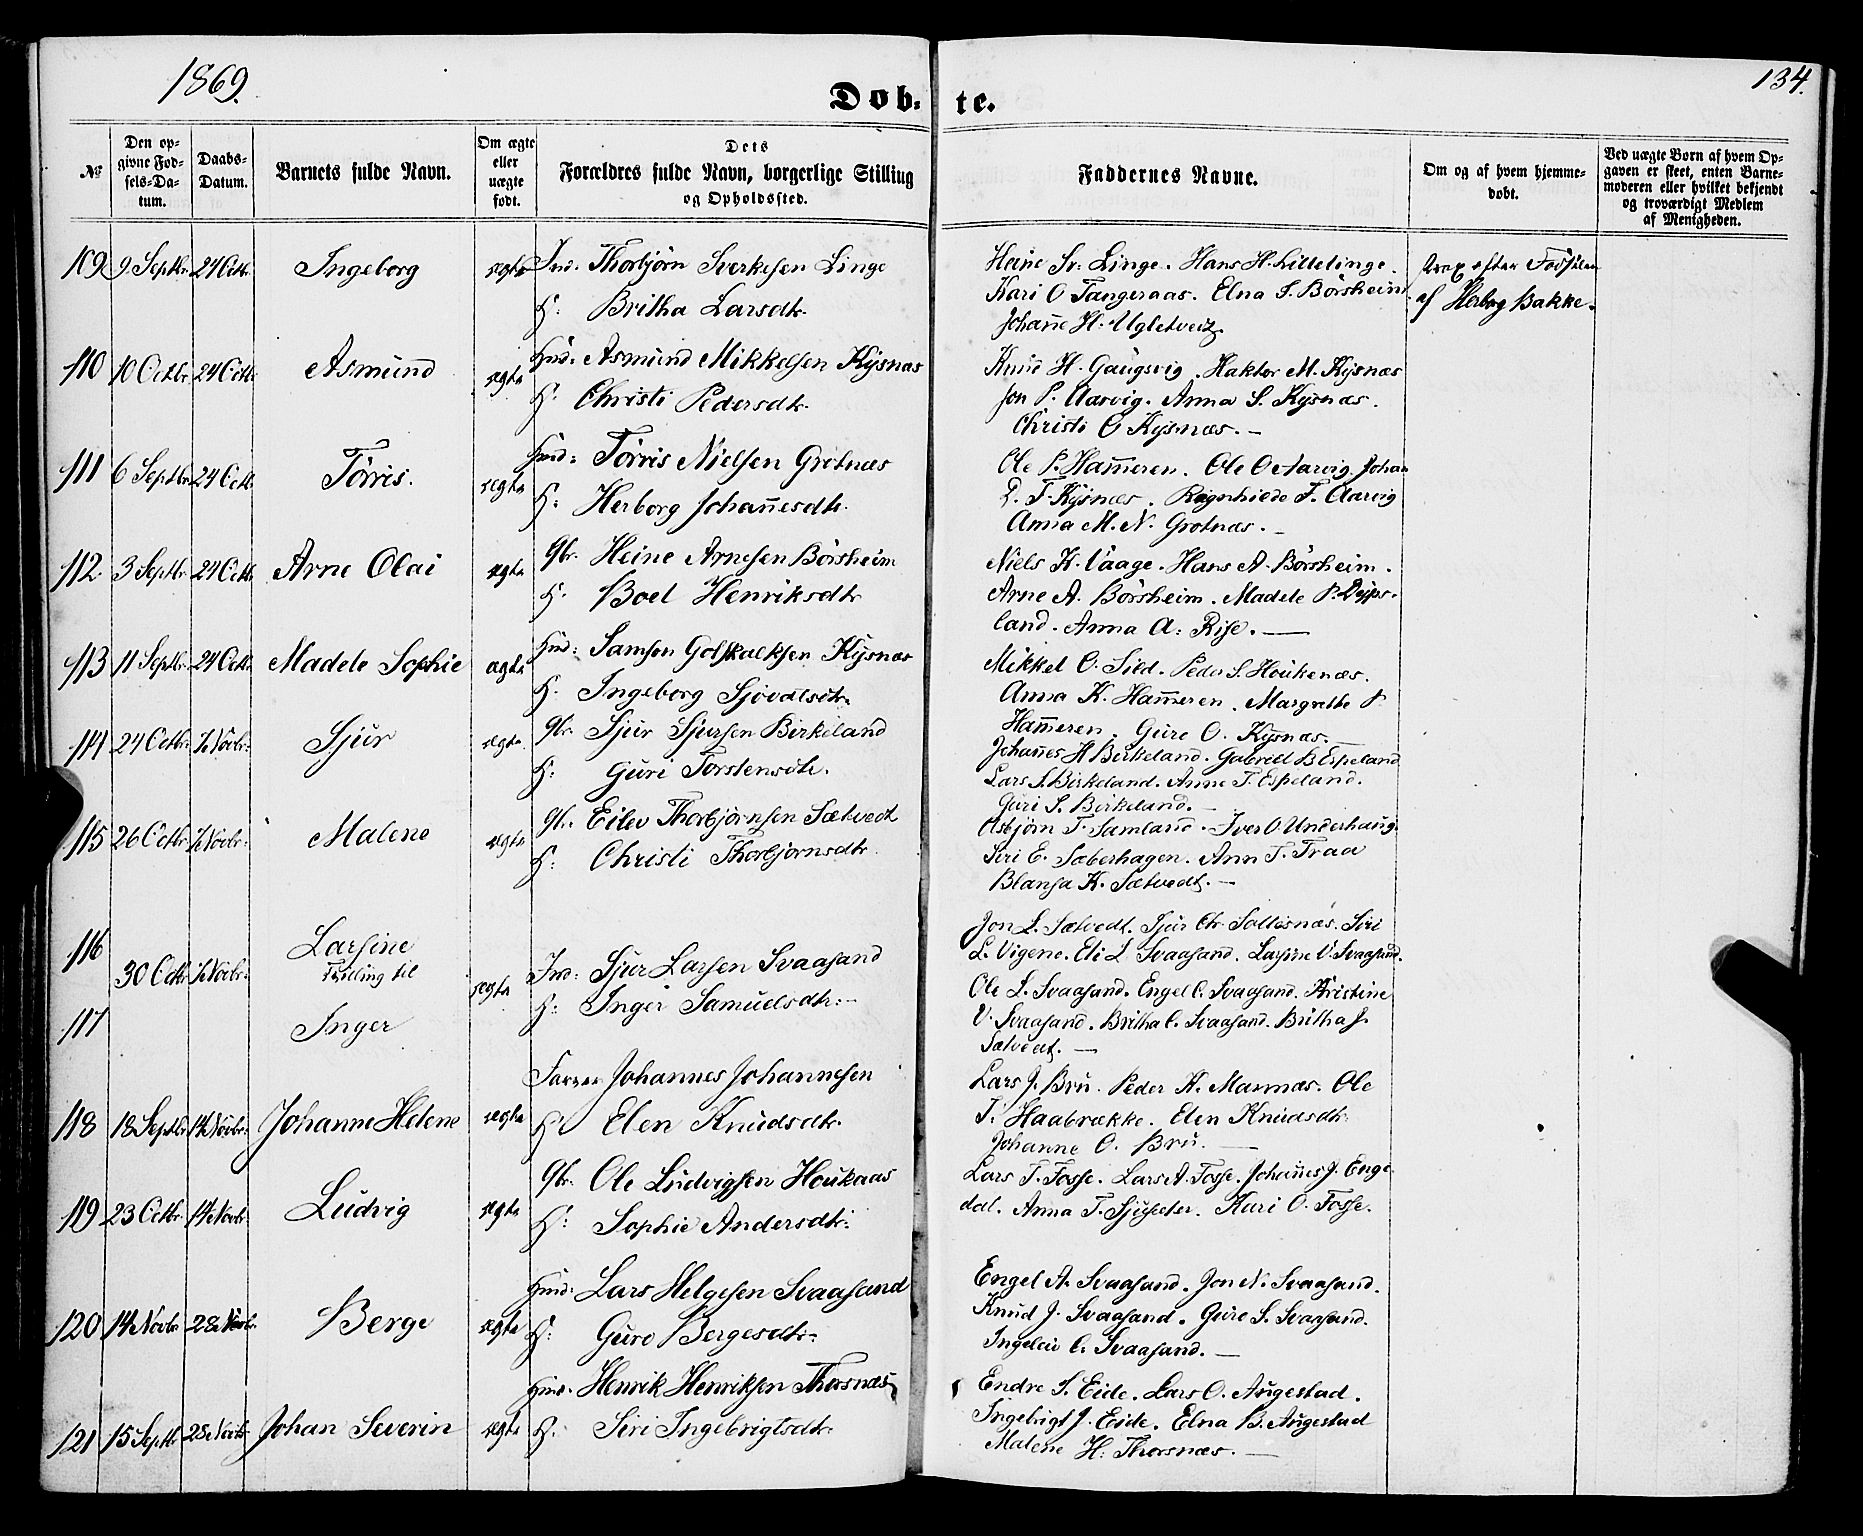 1869.
134.
Døb-te.
№
Den op-
givne Fød-
sels-Da-
tum.
Daabs-
Datum.
Barnets fulde Navn.
Om ægte
eller
uægte
født.
Dets
Forældres fulde Navn, borgerlige Stilling
og Opholdssted.
Faddernes Navne.
Om og af hvem hjemme-
døbt.
Ved uægte Børn af hvem Op-
gaven er skeet, enten Barne-
moderen eller hvilket bekjendt
og troværdigt Medlem
af Menigheden.
109 9 Septbr. 24 Octbr. Ingeborg ægte Ind. Thorbjørn Sverkesen Linge
H: Britha Larsdtr.
Heine Sv. Linge. Hans H. Lillelinge.
Kari O Tangeraas. Elna S. Børsheim
Johañe H. Ugletveit.
strax efter Fødselen
af Herborg Bakke.
110 10 Octbr. 24 Octb. Asmund ægte Hmd: Asmund Mikkelsen Kysnæs
H: Christi Pedersdtr.
Knud H. Gaugsvig. Haktor M. Kysnæs
Jon P. Aarvig. Anna S. Kysnæs.
Christi O Kysnæs. –
111 6 Septbr. 24 Octb. Tørris. ægte Hmd: Tørris Nielsen Grotnæs
H: Herborg Johañesdtr.
Ole P. Ham̃eren. Ole O Aarvig. Johan
T. Kysnæs. Ragnhilde T. Aarvig
Anna M. N. Grotnæs. –
112 3 Septbr. 24 Octb. Arne Olai ægte Gbr. Heine Arnesen Børsheim
H: Boel Henriksdtr
Niels K. Vaage. Hans A. Børsheim.
Arne A. Børsheim. Madele P.
land. Anna A. Rise. —
113 11 Septbr. 24 Octb. Madele Sophie ægte Hmd: Samson Golskalksen Kysnæs
H: Ingeborg Sjovalsdtr.
Mikkel O. Sild. Peder S. Houkenæs.
Anna K. Ham̃eren. Margrethe P
Ham̃eren. Gure O. Kysnæs. –
114 24 Octbr. 7 Novbr. Sjur ægte Gbr. Sjur Sjursen Birkeland
H: Guri Torstensdtr.
Johañes H Birkeland. Gabriel B Espeland
Lars S. Birkeland. Anne T. Espeland.
Guri S. Birkeland. –
115 26 Octbr. 7 Novbr. Malene ægte Gbr. Eilev Thorbjørnsen Sætvedt
H: Christi Thorbjørnsdtr.
Asbjørn T. Samland. Iver O. Underhaug
Siri E. Sæberhagen. Ann T. Traa
Blansa K. Sætvedt. –
116 30 Octbr. 7 Novbr. Larsine
Tvilling til
ægte Ind: Sjur Larsen Svaasand
H: Inger Samuelsdtr: –
Jon L. Sætvedt. Sjur Chr. Soltesnæs. Siri
L. Vigene. Eli L Svaasand. Larsine V. Svaasand.
117 Inger
Ole L. Svaasand. Engel C. Svaasand. Kristine
V. Svaasand. Britha C. Svaasand. Britha J.
Sætvedt. –
118 18 Septbr. 14 Novbr. Johanne Helene ægte Johannes Johannesen
H: Elen Knudsdtr.
Lars J. Bru. Peder K. Marnnæs. Ole
T. Haabrække. Elen Knudsdtr.
Johanne O. Bru. –
119 23 Octbr. 14 Novbr. Ludvig ægte Gbr. Ole Ludvigsen Houkaas
H: Sophie Andersdtr.
Lars T. Fosse. Lars A. Fosse. Johañes J. Enge-
dal. Anna T. Sjusæter. Kari O. Fosse.
120 14 Novbr. 28 Novbr. Berge ægte Hmd: Lars Helgesen Svaasand
H: Guro Bergesdtr.
Engel A. Svaasand. Jon N. Svaasand.
Knud J. Svaasand. Gure S. Svaasand.
Ingeleiv C. Svaasand. –
121 15 Septbr 28 Novbr. Johan Severin ægte Hmd. Henrik Henriksen Thorsnæs
H: Siri Ingebrigtsdtr.
Endre S. Eide. Lars O. Augestad.
Ingebrigt J. Eide. Elna B. Augestad
Malene H. Thorsnæs. –